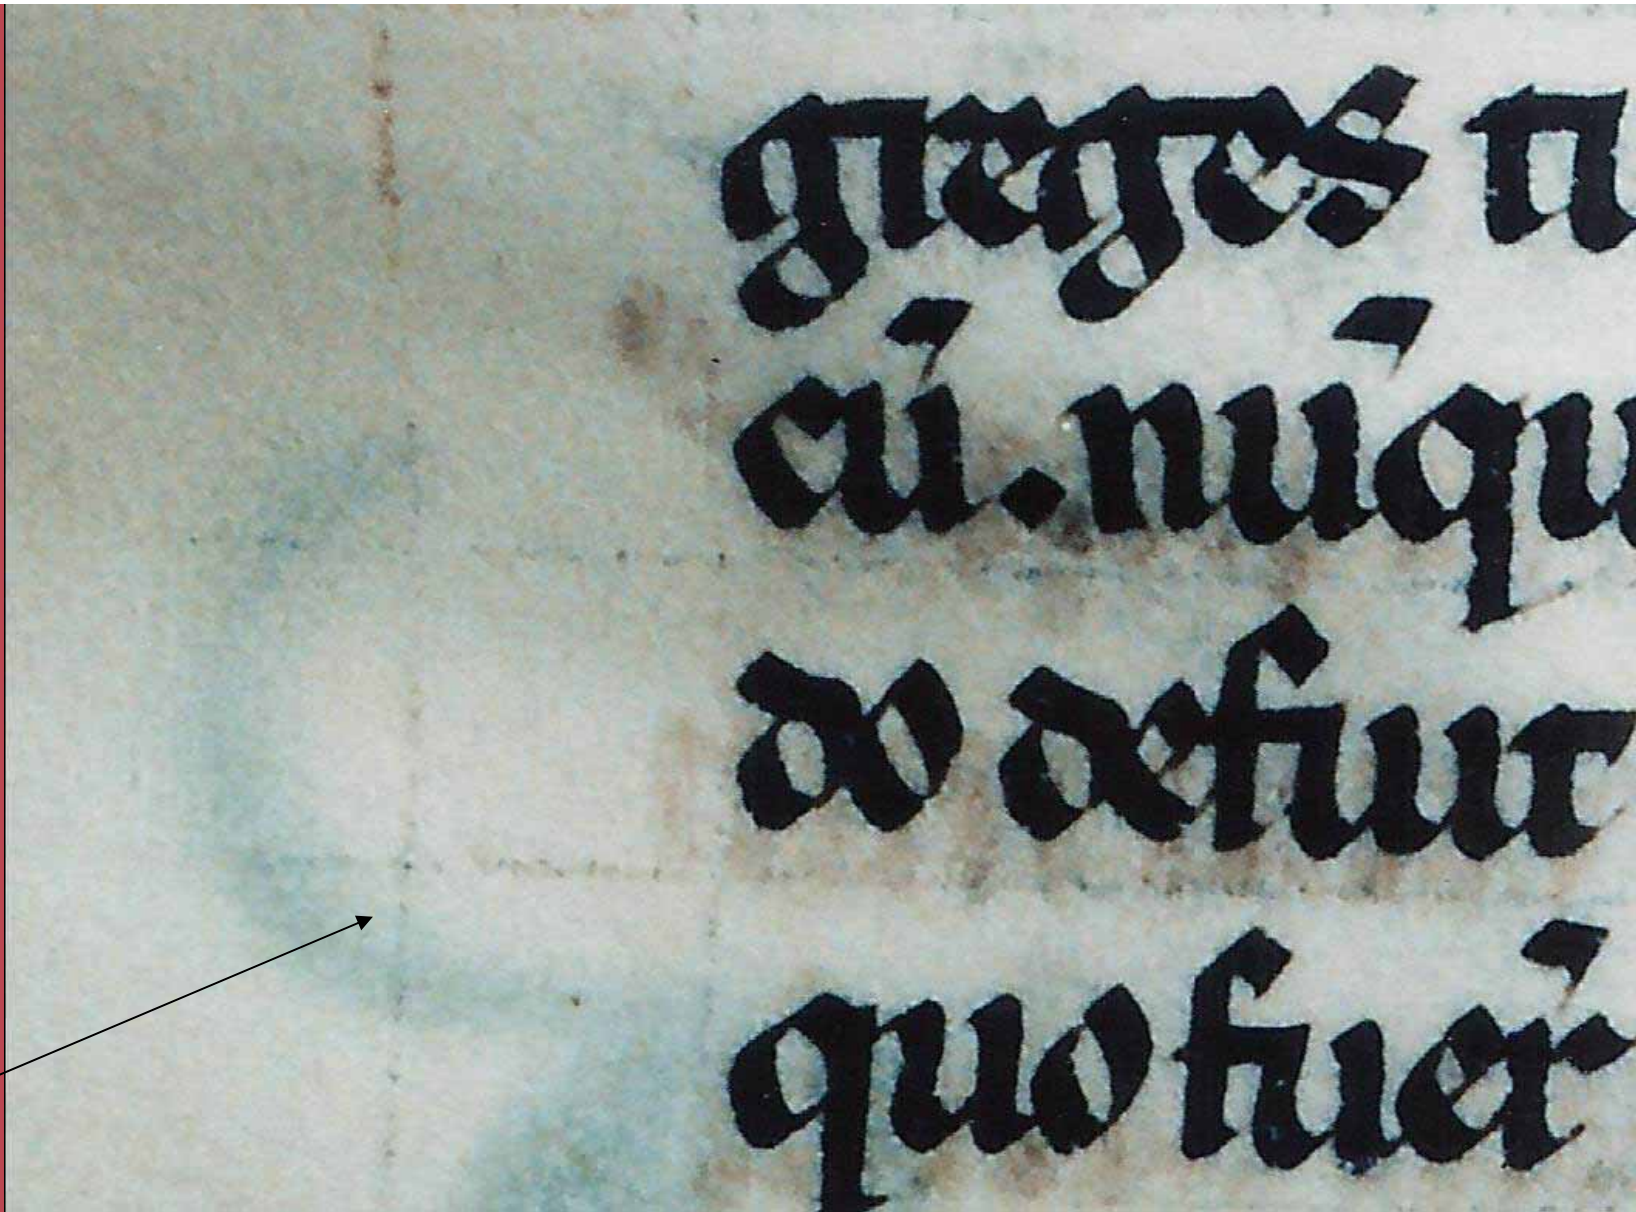 greges tu
cū. nūqu
do defuit
quo fuer̄